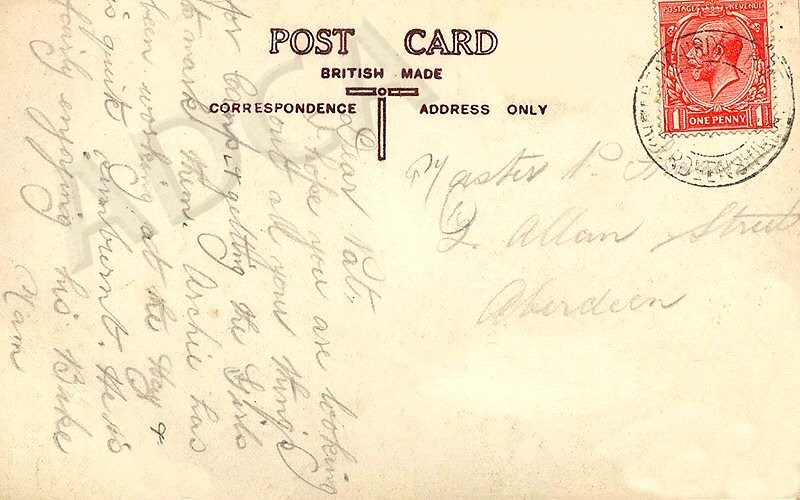 POST CARD
BRITISH MADE
CORRESPONDENCE
ADDRESS ONLY
Dear Pat,
I hope you are looking
out all your things
for Camp & getting the Girls
to mark them. Archie has
been working at the Hay &
is quite Sunburnt. He is
fairly enjoying his Bike
Mam
Master P.
2 Allan Street
Aberdeen
POSTAGE REVENUE
1 ONE PENNY 1
ABERDEENSHIRE
ADCA